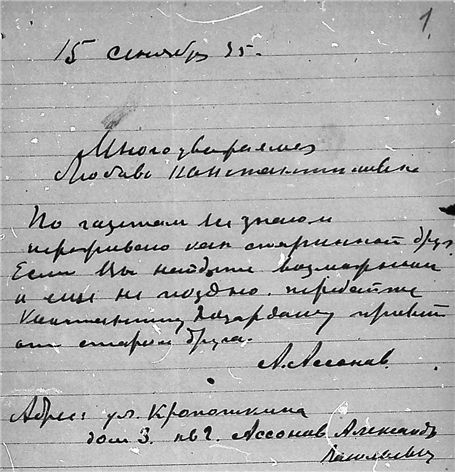 1.
15 Сентября 35г.
Многоуважаемая
Любовь Константиновна
По газетам Вы знаем
как старинной друг.
Если Вы найдете возможным
и еще не поздно, передайте
Константину Эдуардовичу привет
от старого друга.
А. Ассонов.
Адрес: ул. Кропоткина
дом 3. кв 2. Ассонов Александр
Васильевич